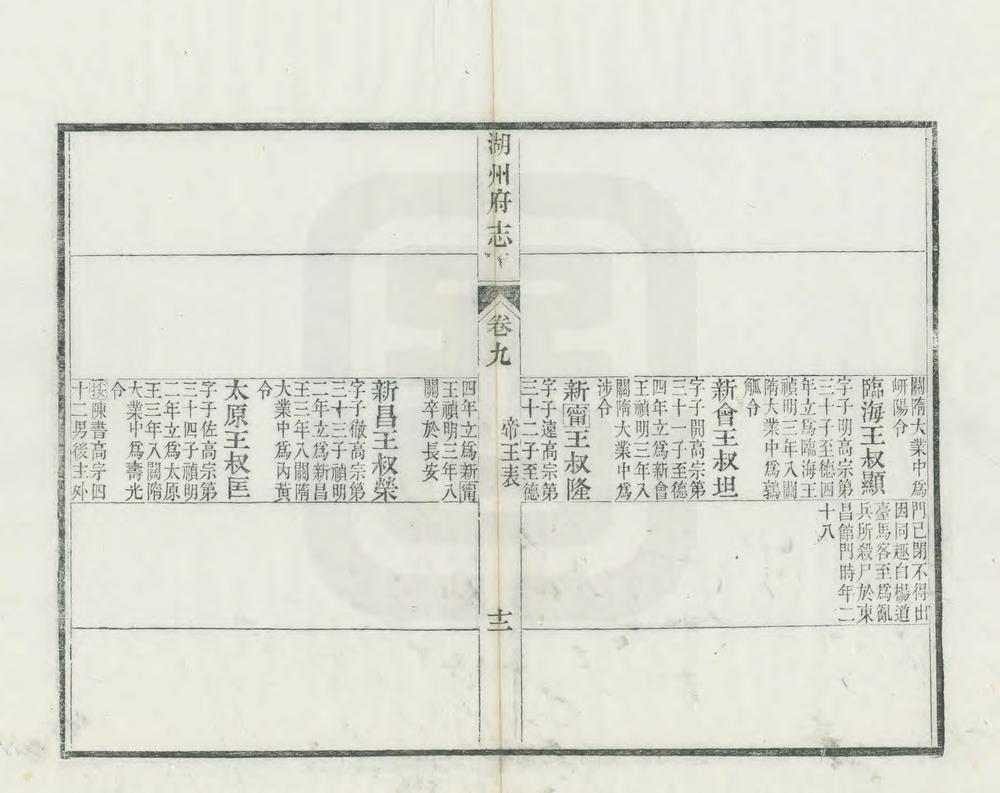 關隋大業中爲
硏陽令
臨海王叔顯
字子明高宗第
三十子至德四
年立爲臨海王
禎明三年入關
隋大業中爲鶉
觚令
新會王叔坦
字子開高宗第
三十一子至德
四年立爲新會
王禎明三年入
關隋大業中爲
涉令
新甯王叔隆
字子遠高宗第
三十二子至德
門已閉不得出
因同趣白楊道
臺馬客至爲亂
兵所殺尸於東
昌館門時年二
十八
湖州府志
卷九
帝王表
十二
四年立爲新甯
王禎明三年入
關卒於長安
新昌王叔榮
字子徹高宗第
三十三子禎明
二年立爲新昌
王三年入關隋
大業中爲內黃
令
太原王叔匡
字子佐高宗第
三十四子禎明
二年立爲太原
王三年入關隋
大業中爲壽光
令
按陳書高宗四
十二男後主外